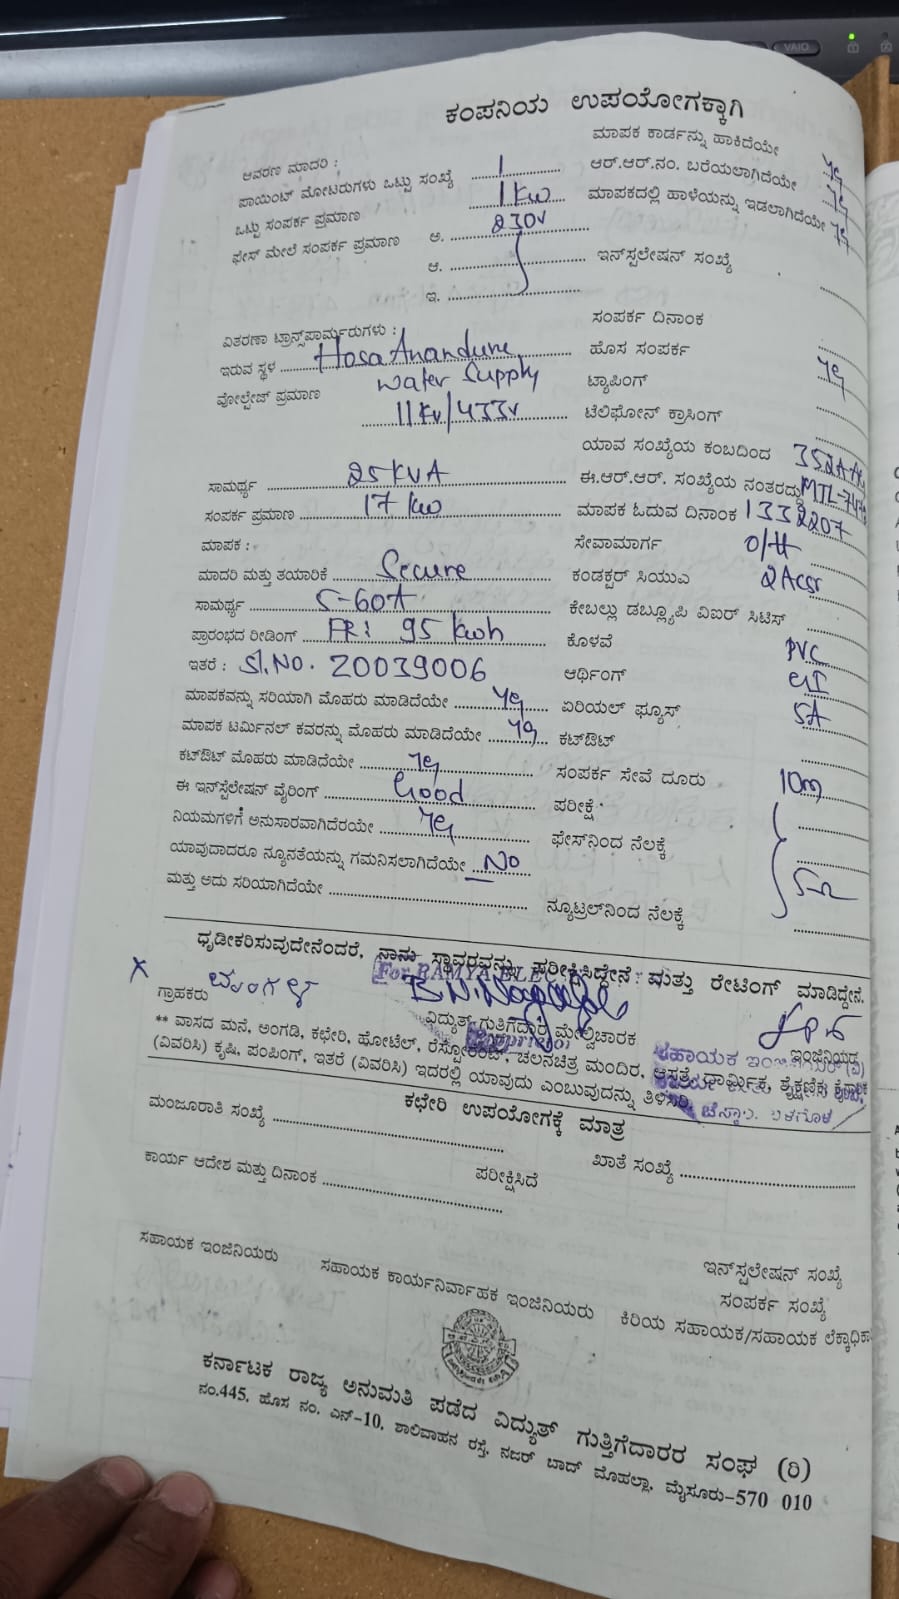 VAIO
ಕಂಪನಿಯ ಉಪಯೋಗಕ್ಕಾಗಿ
ಆವರಣ ಮಾದರಿ : ಮಾಪಕ ಕಾರ್ಡನ್ನು ಹಾಕಿದೆಯೇ
ಪಾಯಿಂಟ್ ಮೋಟರುಗಳು ಒಟ್ಟು ಸಂಖ್ಯೆ 1 ಆರ್.ಆರ್.ನಂ. ಬರೆಯಲಾಗಿದೆಯೇ
ಒಟ್ಟು ಸಂಪರ್ಕ ಪ್ರಮಾಣ 1 KW ಮಾಪಕದಲ್ಲಿ ಹಾಳೆಯನ್ನು ಇಡಲಾಗಿದೆಯೇ
ಫೇಸ್ ಮೇಲೆ ಸಂಪರ್ಕ ಪ್ರಮಾಣ ಅ. 230V
ಆ. ಇನ್‌ಸ್ಟಲೇಷನ್ ಸಂಖ್ಯೆ
ಇ.
ವಿತರಣಾ ಟ್ರಾನ್ಸ್‌ಪಾರ್ಮ್ರುರುಗಳು : ಸಂಪರ್ಕ ದಿನಾಂಕ
ಇರುವ ಸ್ಥಳ Hosa Water Supply ಹೊಸ ಸಂಪರ್ಕ
ವೋಲ್ಟೇಜ್ ಪ್ರಮಾಣ 11KV/433V ಟ್ಯಾಪಿಂಗ್
ಟೆಲಿಫೋನ್ ಕ್ರಾಸಿಂಗ್
ಯಾವ ಸಂಖ್ಯೆಯ ಕಂಬದಿಂದ
ಸಾಮರ್ಥ್ಯ 25 KVA ಈ.ಆರ್.ಆರ್. ಸಂಖ್ಯೆಯ ನಂತರದ್ದು
ಸಂಪರ್ಕ ಪ್ರಮಾಣ 17 KW ಮಾಪಕ ಓದುವ ದಿನಾಂಕ
ಮಾಪಕ : ಸೇವಾಮಾರ್ಗ O/H
ಮಾದರಿ ಮತ್ತು ತಯಾರಿಕೆ Secure ಕಂಡಕ್ಟರ್ ಸಿಯುಎ
ಸಾಮರ್ಥ್ಯ 5-60A ಕೇಬಲ್ಲು ಡಬ್ಲ್ಯೂಪಿ ವಿಐಆರ್ ಸಿಟಿಸ್
ಪ್ರಾರಂಭದ ರೀಡಿಂಗ್ FR: 95 kwh ಕೊಳವೆ PVC
ಇತರೆ : Sl.NO. 20039006 ಆರ್ಥಿಂಗ್ GI
ಮಾಪಕವನ್ನು ಸರಿಯಾಗಿ ಮೊಹರು ಮಾಡಿದೆಯೇ ಏರಿಯಲ್ ಫ್ಯೂಸ್ 5A
ಮಾಪಕ ಟರ್ಮಿನಲ್ ಕವರನ್ನು ಮೊಹರು ಮಾಡಿದೆಯೇ ಕಟ್‌ಔಟ್
ಕಟ್‌ಔಟ್ ಮೊಹರು ಮಾಡಿದೆಯೇ ಸಂಪರ್ಕ ಸೇವೆ ದೂರು 10m
ಈ ಇನ್‌ಸ್ಟೆಲೇಷನ್ ವೈರಿಂಗ್ Good ಪರೀಕ್ಷೆ
ನಿಯಮಗಳಿಗೆ ಅನುಸಾರವಾಗಿದೆರಯೇ ಫೇಸ್‌ನಿಂದ ನೆಲಕ್ಕೆ
ಯಾವುದಾದರೂ ನ್ಯೂನತೆಯನ್ನು ಗಮನಿಸಲಾಗಿದೆಯೇ NO
ಮತ್ತು ಅದು ಸರಿಯಾಗಿದೆಯೇ ನ್ಯೂಟ್ರಲ್‌ನಿಂದ ನೆಲಕ್ಕೆ
ಧೃಡೀಕರಿಸುವುದೇನೆಂದರೆ, ನಾನು ಸ್ಥಾವರವನ್ನು ಪರೀಕ್ಷಿಸಿದ್ದೇನೆ ಮತ್ತು ರೇಟಿಂಗ್ ಮಾಡಿದ್ದೇನೆ.
For RAMYA
ಗ್ರಾಹಕರು ವಿದ್ಯುತ್ ಗುತ್ತಿಗೆದಾರ ಮೇಲ್ವಿಚಾರಕ ಇಂಜಿನಿಯರ್
** ವಾಸದ ಮನೆ, ಅಂಗಡಿ, ಕಛೇರಿ, ಹೋಟೆಲ್, ರೆಸ್ಟೋರೆಂಟ್, ಚಲನಚಿತ್ರ ಮಂದಿರ, ಆಸ್ಪತ್ರೆ, ಧಾರ್ಮಿಕ, ಶೈಕ್ಷಣಿಕ,
(ವಿವರಿಸಿ) ಕೃಷಿ, ಪಂಪಿಂಗ್, ಇತರೆ (ವಿವರಿಸಿ) ಇದರಲ್ಲಿ ಯಾವುದು ಎಂಬುವುದನ್ನು ತಿಳಿಸಿರಿ
ಕಛೇರಿ ಉಪಯೋಗಕ್ಕೆ ಮಾತ್ರ
ಮಂಜೂರಾತಿ ಸಂಖ್ಯೆ ಖಾತೆ ಸಂಖ್ಯೆ
ಕಾರ್ಯ ಆದೇಶ ಮತ್ತು ದಿನಾಂಕ ಪರೀಕ್ಷಿಸಿದೆ
ಇನ್‌ಸ್ಟಲೇಷನ್ ಸಂಖ್ಯೆ
ಸಂಪರ್ಕ ಸಂಖ್ಯೆ
ಸಹಾಯಕ ಇಂಜಿನಿಯರು ಸಹಾಯಕ ಕಾರ್ಯನಿರ್ವಾಹಕ ಇಂಜಿನಿಯರು ಕಿರಿಯ ಸಹಾಯಕ/ಸಹಾಯಕ
ಕರ್ನಾಟಕ ರಾಜ್ಯ ಅನುಮತಿ ಪಡೆದ ವಿದ್ಯುತ್ ಗುತ್ತಿಗೆದಾರರ ಸಂಘ (ರಿ)
ನಂ.445, ಹೊಸ ನಂ. ಎನ್-10, ಶಾಲಿವಾಹನ ರಸ್ತೆ, ನಜರ್ ಬಾದ್ ಮೊಹಲ್ಲಾ, ಮೈಸೂರು-570 010